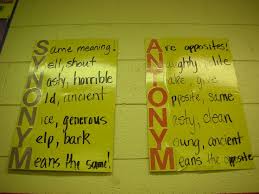 Same meaning.
Yell, shout
Nasty, horrible
Old, ancient
Nice, generous
Yelp, bark
Means the same!
Are opposites!
Naughty polite
Take give
Opposite, same
Nasty, clean
Young, ancient
Means the opposite